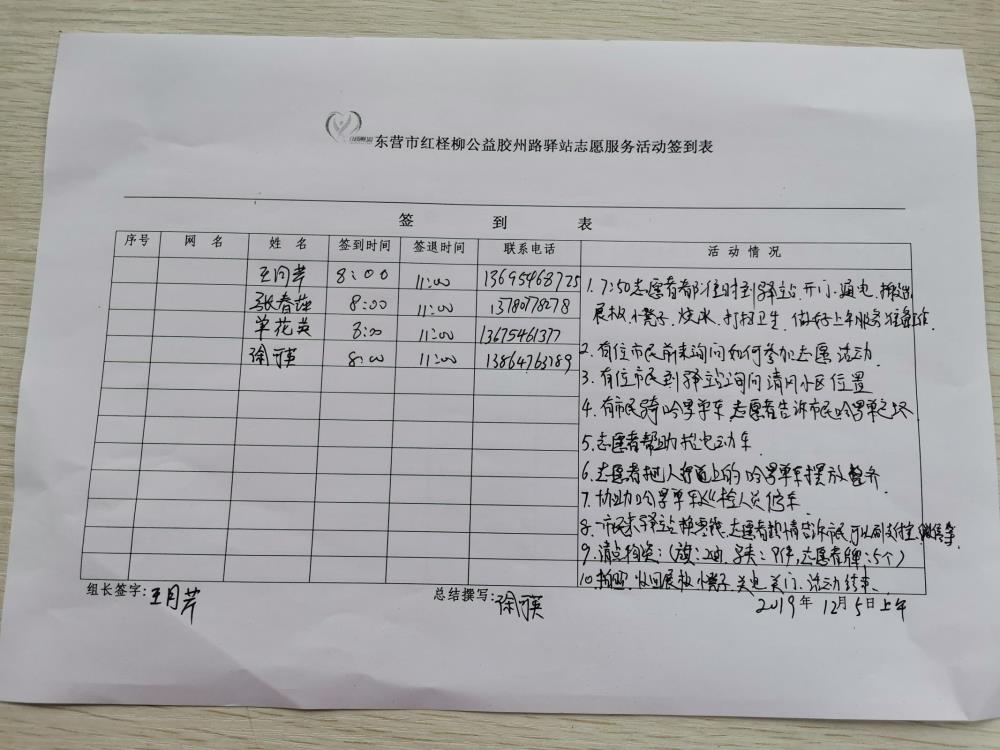 东营市红柽柳公益胶州路驿站志愿服务活动签到表
签 到 表
序号 网 名 姓 名 签到时间 签退时间 联系电话 活 动 情 况
王月芹 8:00 11:00 13695468725
张春莲 8:00 11:00 13780778078
单花英 8:00 11:00 13675461377
徐 英 8:00 11:00 13864763189
1. 7:50志愿者都准时到驿站.开门.通电.搬出
展板.小凳子.烧水.打扫卫生.做好上午服务准备工作.
2. 有位市民前来询问如何参加志愿活动
3. 有位市民到驿站询问清风小区位置
4. 有市民骑哈罗单车.志愿者告诉市民哈罗单车
5. 志愿者帮助抬电动车
6. 志愿者把人行道上的哈罗单车摆放整齐.
7. 协助哈罗单车巡检人员修车
8. 一市民来驿站换零钱.志愿者热情告诉市民.可以用支付宝.微信等
9. 清点物资:(旗:2面.马夹:9件.志愿者牌:5个)
10. 拍照.收回展板.小凳子.关电.关门.活动结束.
组长签字:王月芹 总结撰写:徐 英 2019年12月5日上午